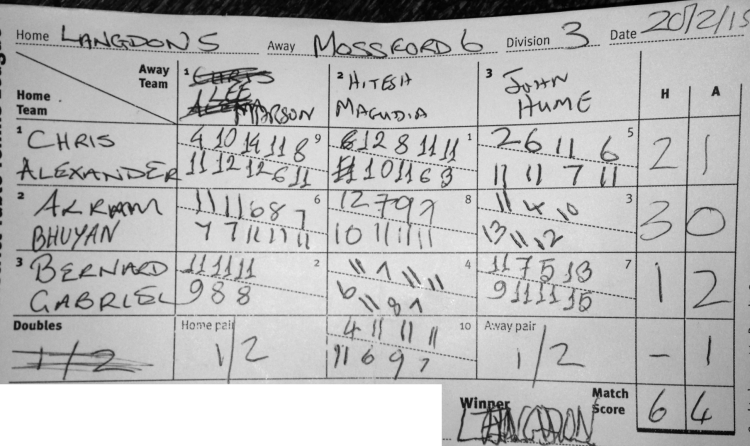 Home LANGDON 5 Away MOSSFORD 6 Division 3 Date 20/2/15
Away Team
Home Team
1 LEE MARSON
2 HITESH MAGUDIA
3 JOHN HUME
H A
1 CHRIS ALEXANDER
4 10 14 11 8 9
11 12 12 6 11
6 12 8 11 11 1
11 10 11 6 3
2 6 11 6 5
11 11 7 11
2 1
2 AKRAM BHUYAN
11 11 6 8 7 6
7 7 11 11 11
12 7 9 7 8
10 11 11 11
11 4 10 3
13 11 12
3 0
3 BERNARD GABRIEL
11 11 11 2
9 8 8
11 7 11 11 4
6 11 8 7
11 7 5 13 7
9 11 11 15
1 2
Doubles
1/2
Home pair
1/2
4 11 11 11 10
11 6 9 7
Away pair
1/2
- 1
Winner LANGDON
Match Score 6 4